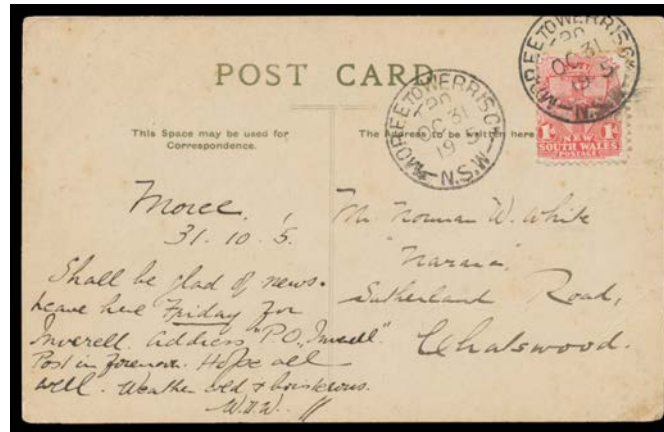 POST CARD
This Space may be used for
Correspondence.
The Address to be written here
MOREE TO WERRIS CK
OC 31
19 5
N.S.W
MOREE TO WERRIS CK
OC 31
19 5
N.S.W
1d 1d
NEW
SOUTH WALES
POSTAGE
Moree,
31.10.5.
Shall be glad of news.
Leave here Friday for
Inverell. Address "P.O., Inverell".
Post in forenoon. Hope all
well. Weather cold & boisterous.
Mr. Norman W. White
Sutherland Road,
Chatswood.